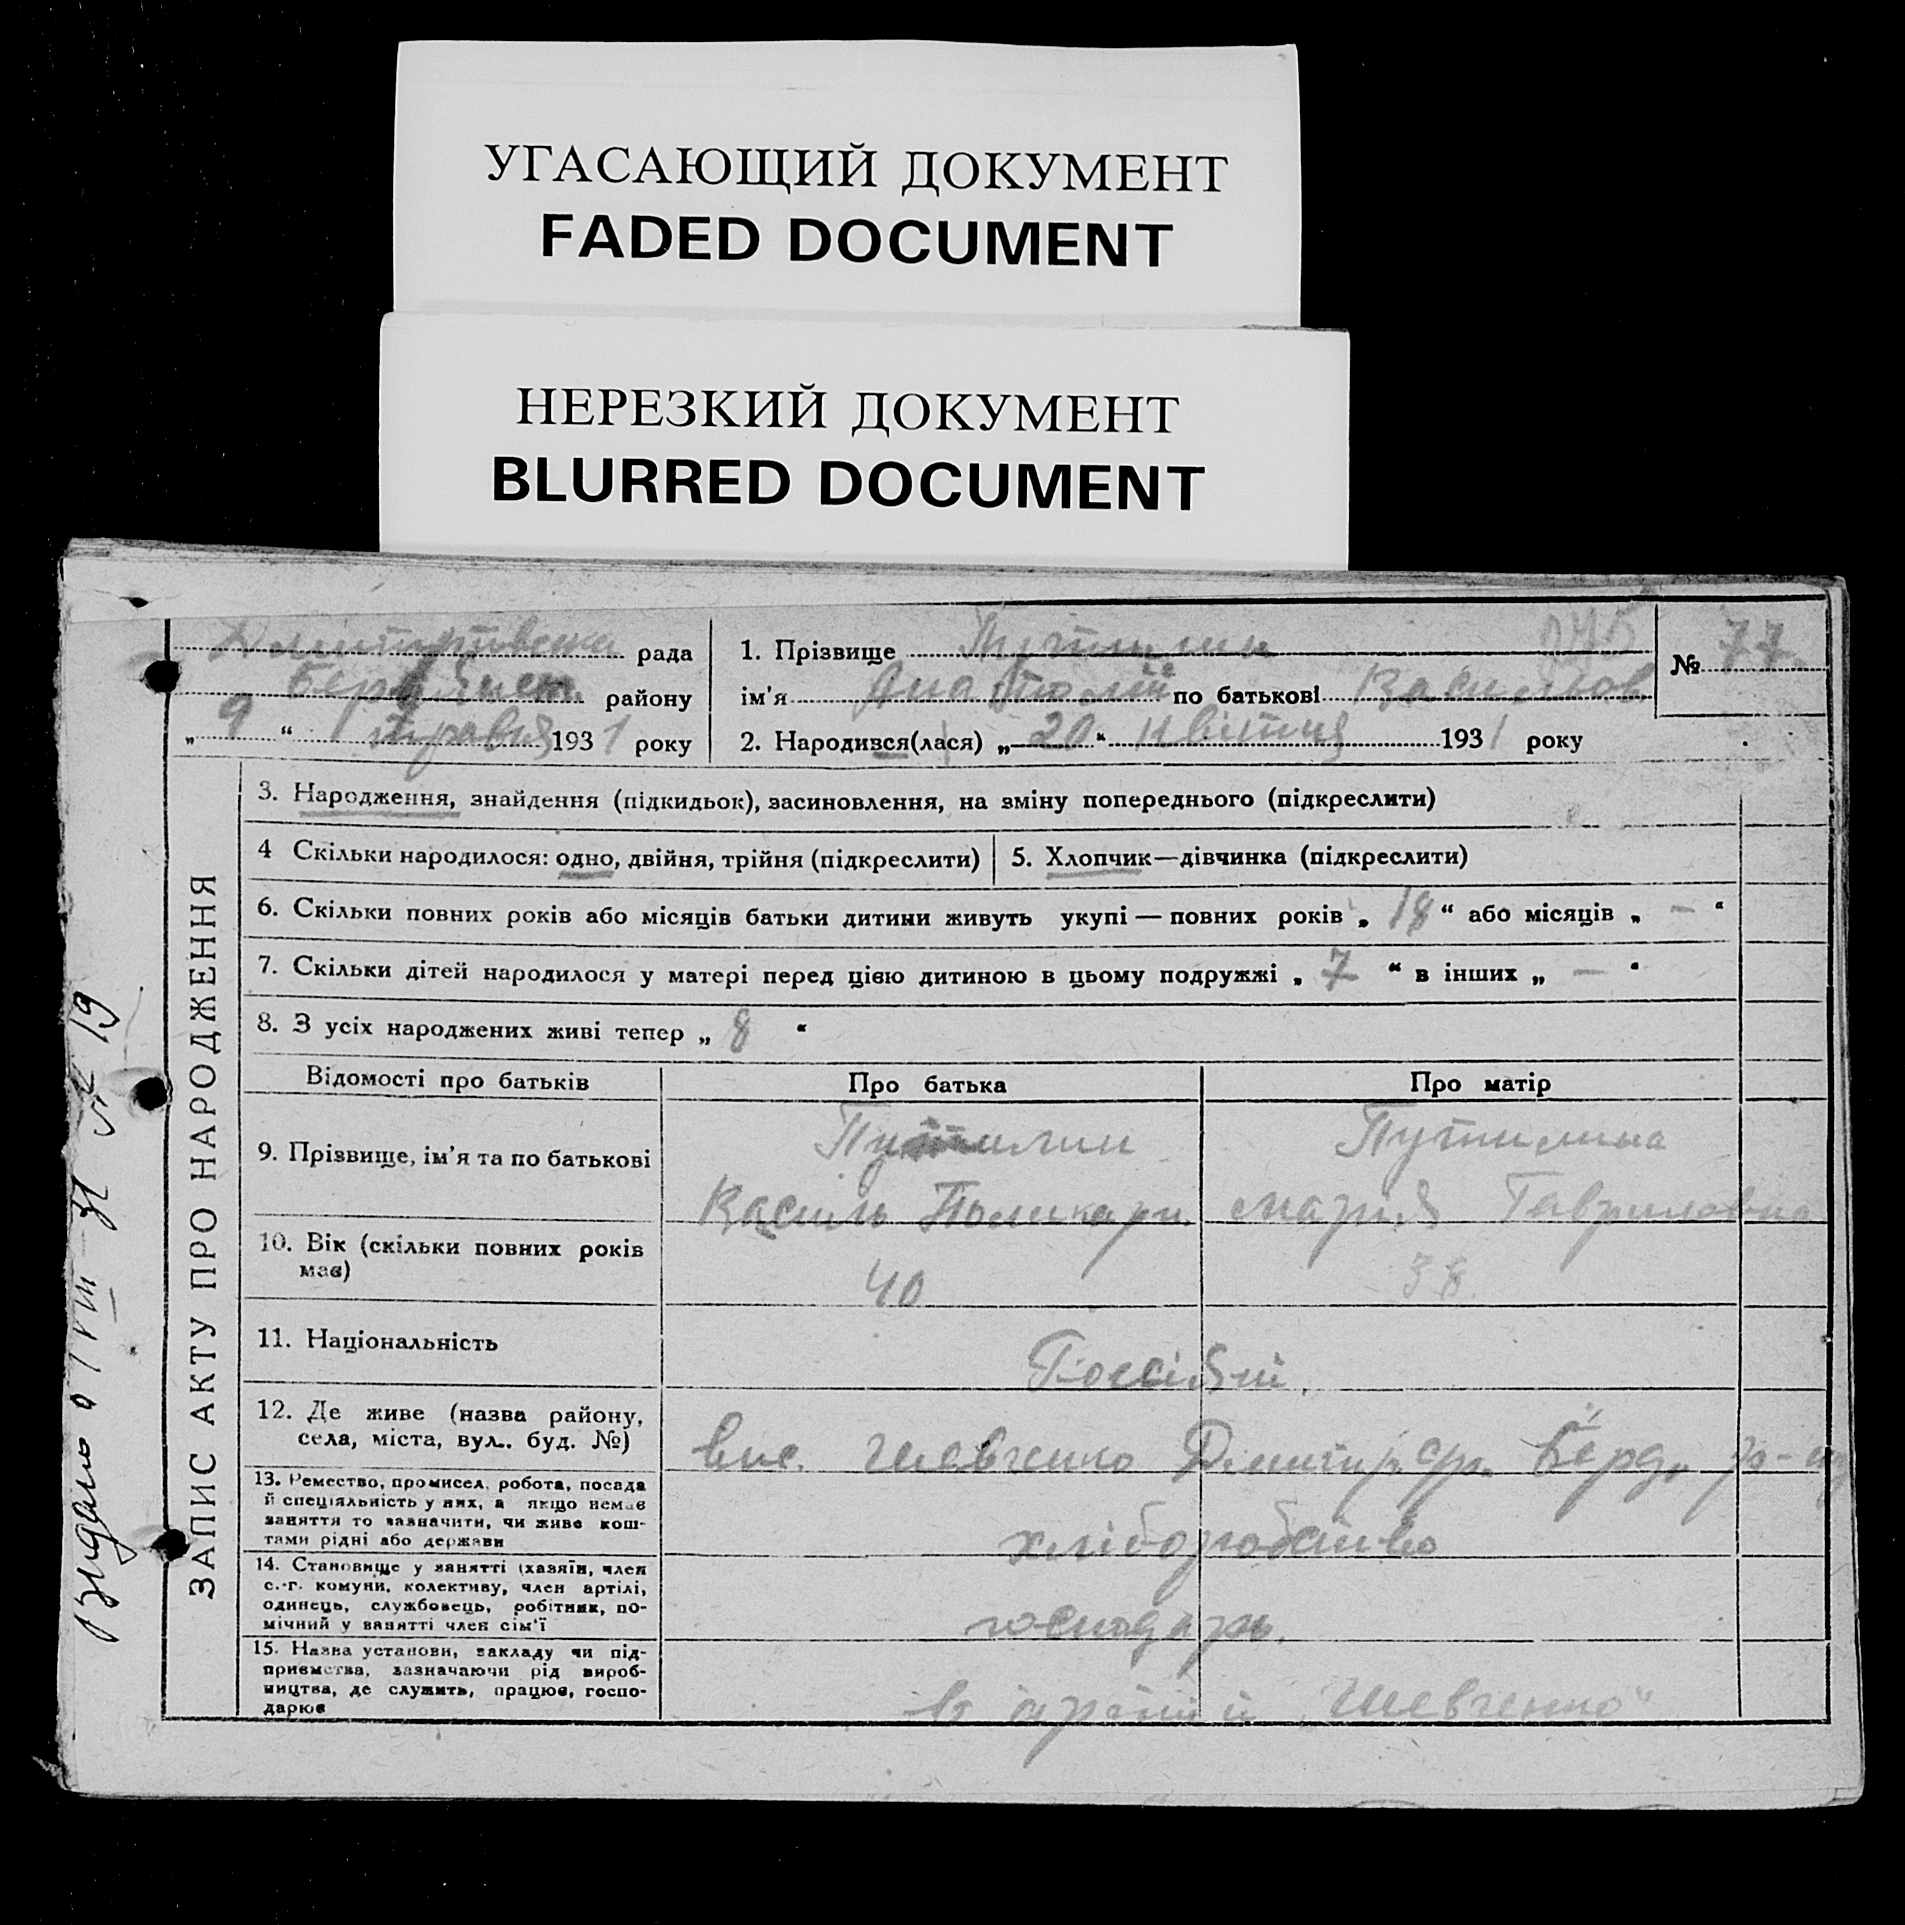 УГАСАЮЩИЙ ДОКУМЕНТ
FADED DOCUMENT
НЕРЕЗКИЙ ДОКУМЕНТ
BLURRED DOCUMENT
рада
районy
„ 9 “ травня 1931 року
1. Прізвище Путилин
ім'я Анатолій по батькові Васильов
2. Народився(лася) „ 20 “ Квітня 1931 року
№ 77
ЗАПИС АКТУ ПРО НАРОДЖЕННЯ
3. Народження, знайдення (підкидьок), засиновлення, на зміну попереднього (підкреслити)
4 Скільки народилося: одно, двійня, трійня (підкреслити)
5. Хлопчик—дівчинка (підкреслити)
6. Скільки повних років або місяців батьки дитини живуть укупі — повних років „ 18 “ або місяців „ — “
7. Скільки дітей народилося у матері перед цією дитиною в цьому подружжі „ 7 “ в інших „ — “
8. З усіх народжених живі тепер „ 8 “
Відомості про батьків
Про батька
Про матір
9. Прізвище, ім'я та по батькові
Путилин
Василь Поликарп.
Путилина
Мария Гавриловна
10. Вік (скільки повних років
має)
40
38
11. Національність
12. Де живе (назва району,
села, міста, вул.. буд. №)
вис. Шевченко Ср. Берд. р-ну
13. Ремество, промисел, робота, посада
й спеціяльність у них, а якщо немає
заняття то зазначити, чи живе кош-
тами рідні або держави
хліборобство
14. Становище у занятті (хазяїн, член
с.-г. комуни, колективу, член артілі,
одинець, службовець, робітник, по-
мічний у занятті член сім'ї
господарь.
15. Назва установи, закладу чи під-
приємства, зазначаючи рід вироб-
ництва, де служить, працює, госпо-
дарює
в артілі „Шевченко“
Видано 1 VIII 31 № 19